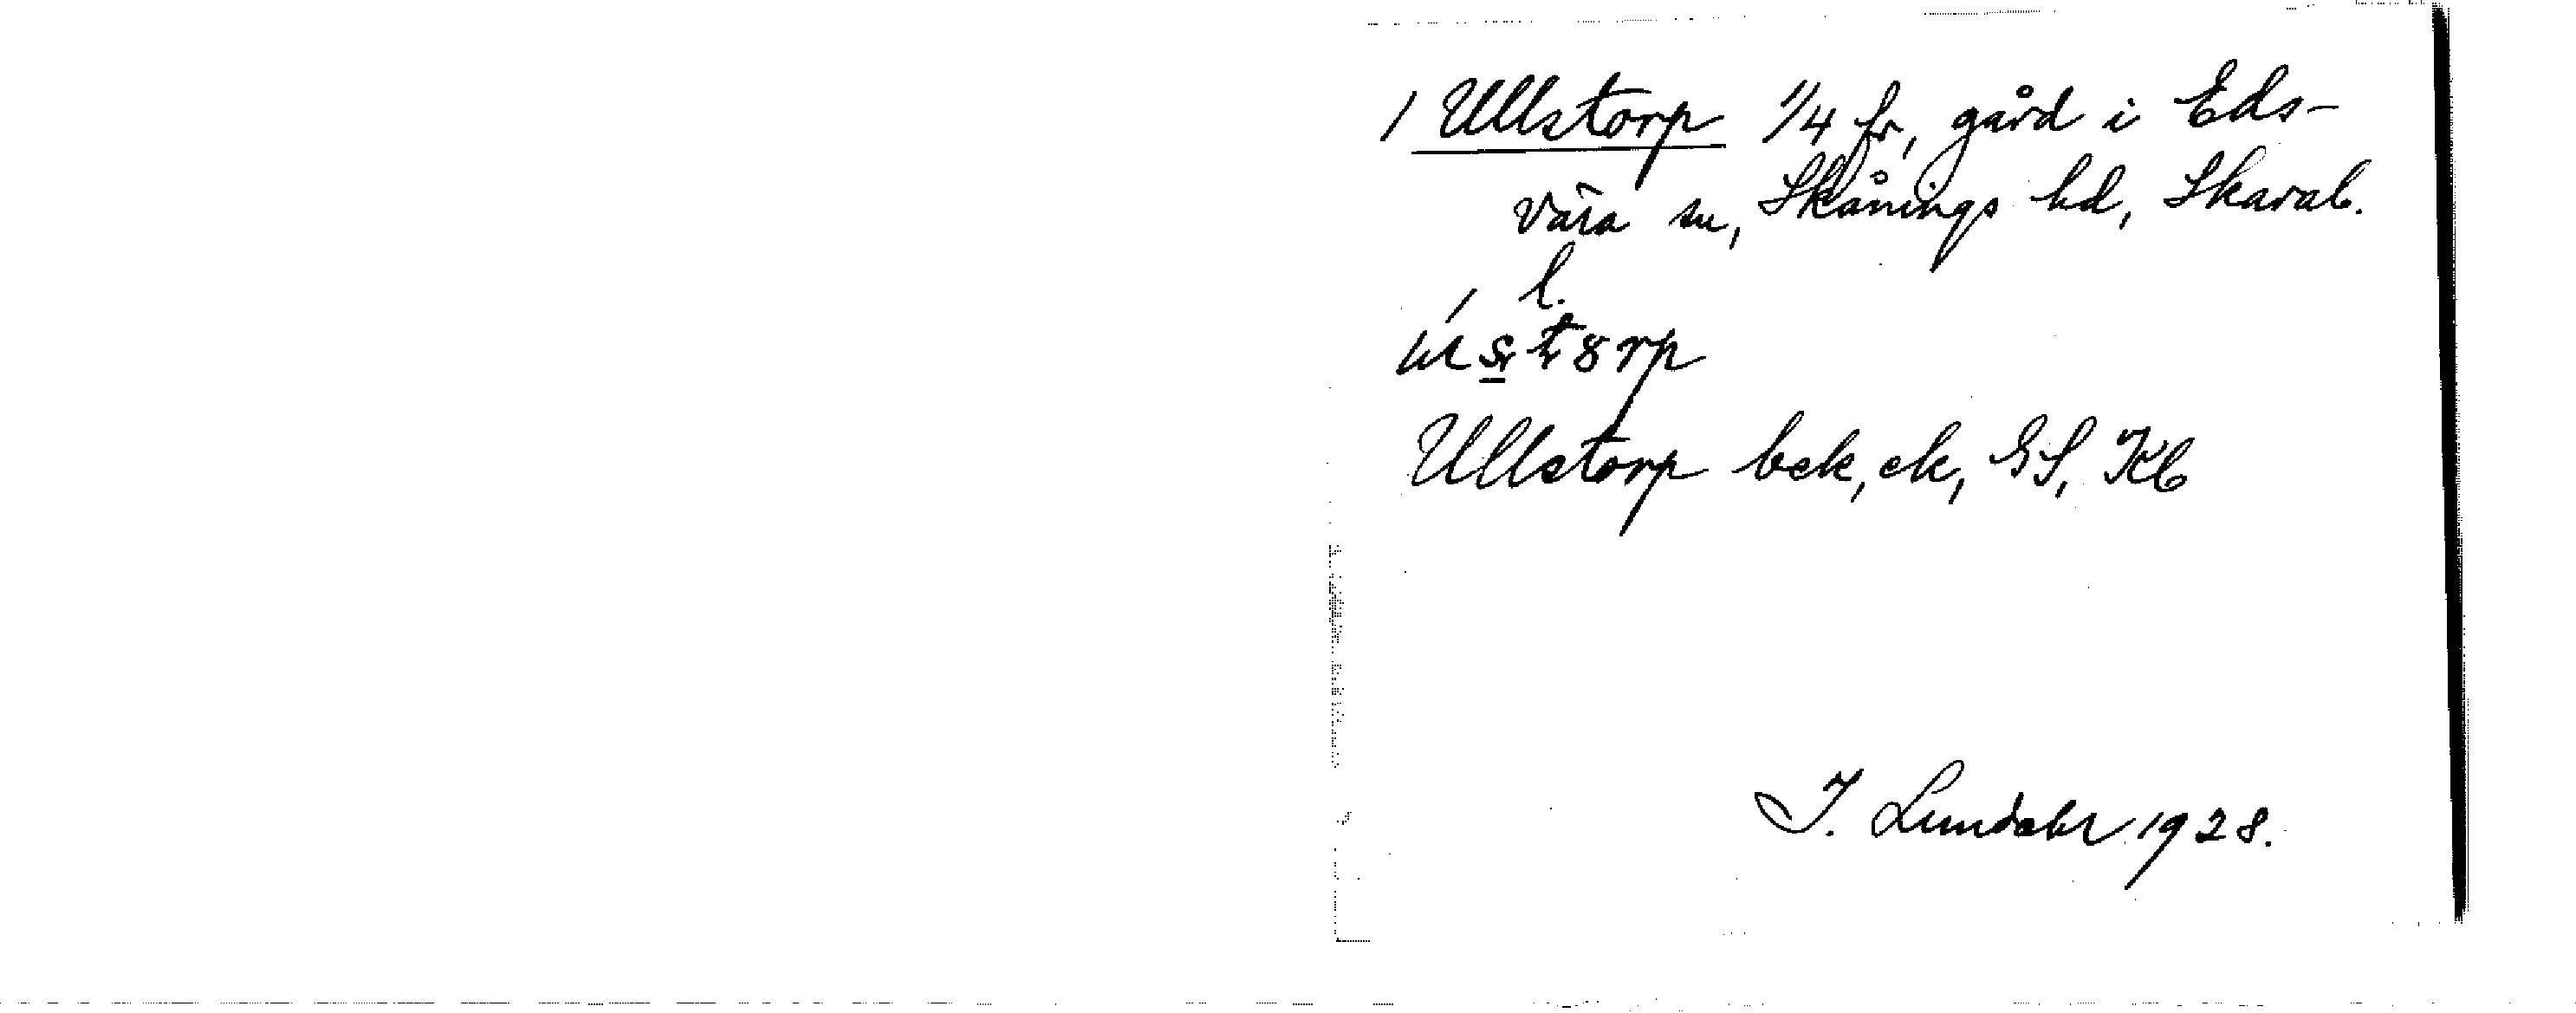 1 Ullstorp 1/4 fr, gård i Eds-
vära sn, Skånings hd, Skarab.
l.
Ullstorp bek, ek, GS, Kb
I. Lundahl 1928.